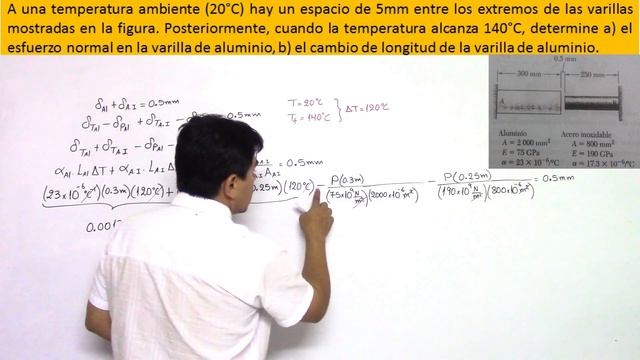 A una temperatura ambiente (20°C) hay un espacio de 5mm entre los extremos de las varillas
mostradas en la figura. Posteriormente, cuando la temperatura alcanza 140°C, determine a) el
esfuerzo normal en la varilla de aluminio, b) el cambio de longitud de la varilla de aluminio.
0.5 mm
300 mm
250 mm
A
Aluminio
A = 2 000 mm²
E = 75 GPa
α = 23 × 10⁻⁶/°C
Acero inoxidable
A = 800 mm²
E = 190 GPa
α = 17.3 × 10⁻⁶/°C
δAl + δAI = 0.5mm
T = 20°C
Tf = 140°C
ΔT = 120°C
δTAl - δPAl + δTAI - 0.5mm
δTAl + δTAI -
αAl · LAl ΔT + αAI · LAI ΔT + AAI = 0.5mm
(23×10⁻⁶ °C⁻¹)(0.3m)(120°C) + 0.25m)(120°C) - P(0.3m) / (75×10⁹ N/m²)(2000×10⁻⁶ m²) - P(0.25m) / (190×10⁹ N/m²)(800×10⁻⁶ m²) = 0.5mm
0.001